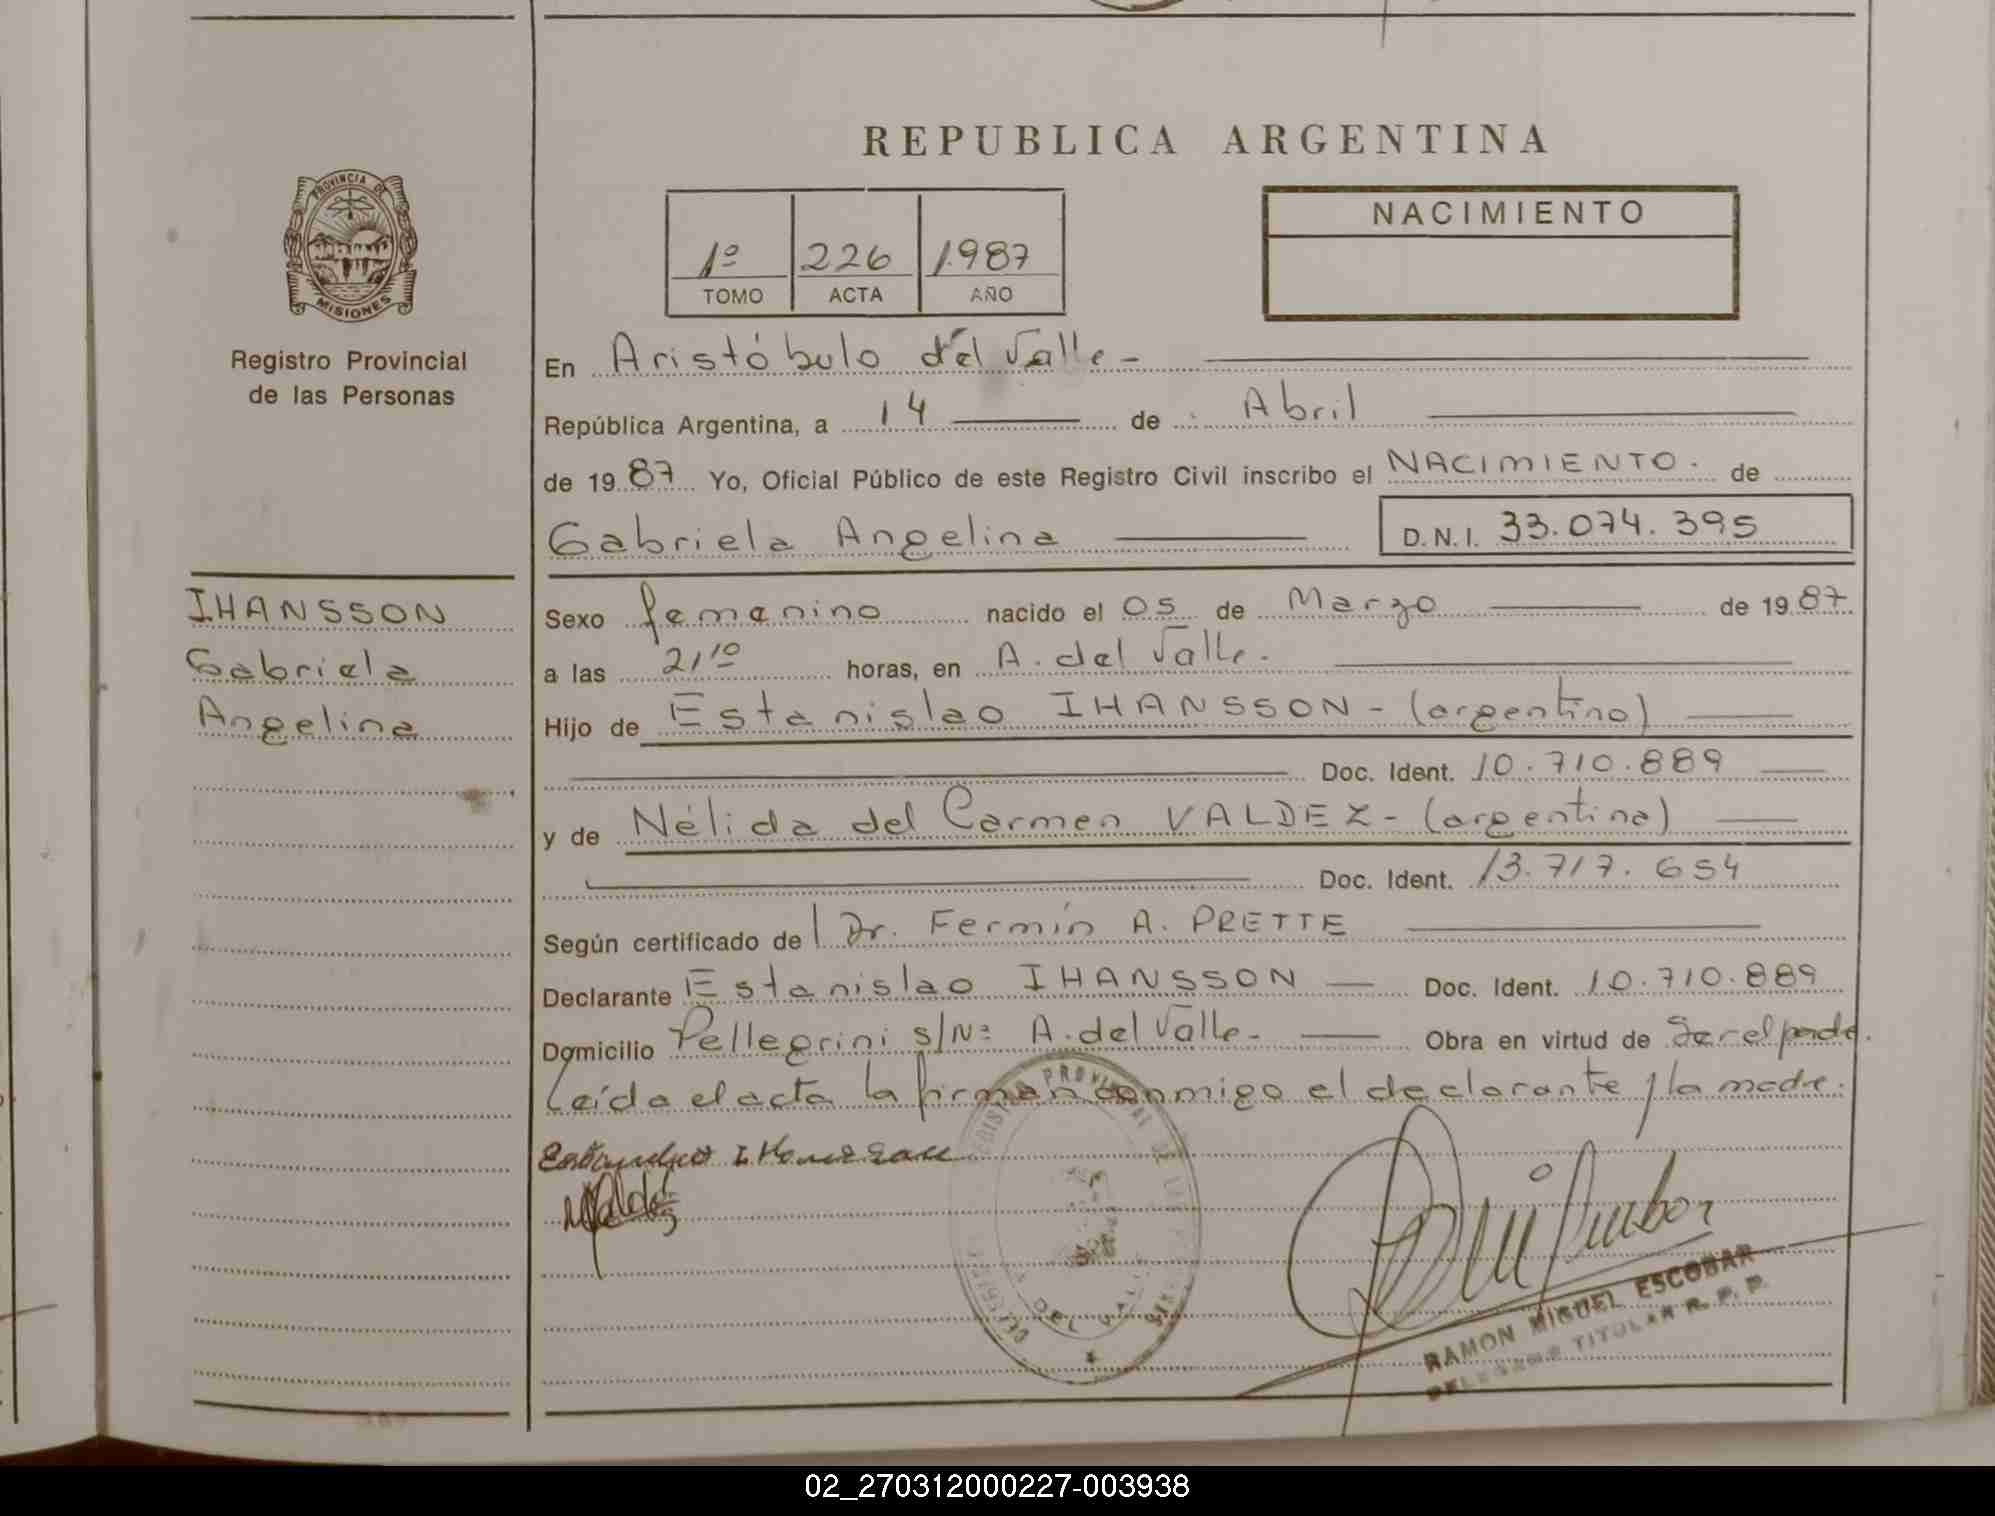 REPUBLICA ARGENTINA
PROVINCIA DE
MISIONES
Registro Provincial
de las Personas
1º 226 1987
TOMO ACTA AÑO
NACIMIENTO
En Aristóbulo del Valle-
República Argentina, a 14 de Abril
de 1987 Yo, Oficial Público de este Registro Civil inscribo el NACIMIENTO. de
Gabriela Angelina D.N.I. 33.074.395
IHANSSON
Gabriela
Angelina
Sexo femenino nacido el 05 de Marzo de 1987
a las 21¹⁰ horas, en A. del Valle.
Hijo de Estanislao IHANSSON - (argentino)
Doc. Ident. 10.710.889
y de Nélida del Carmen VALDEZ - (argentina)
Doc. Ident. 13.717.654
Según certificado de Dr. Fermín A. PRETTE
Declarante Estanislao IHANSSON Doc. Ident. 10.710.889
Domicilio Pellegrini s/Nº A. del Valle. Obra en virtud de Ser el padre.
Leída el acta la firman conmigo el declarante y la madre.
RAMON MIGUEL ESCOBAR
DELEGADO TITULAR R. P. P.
02_270312000227-003938